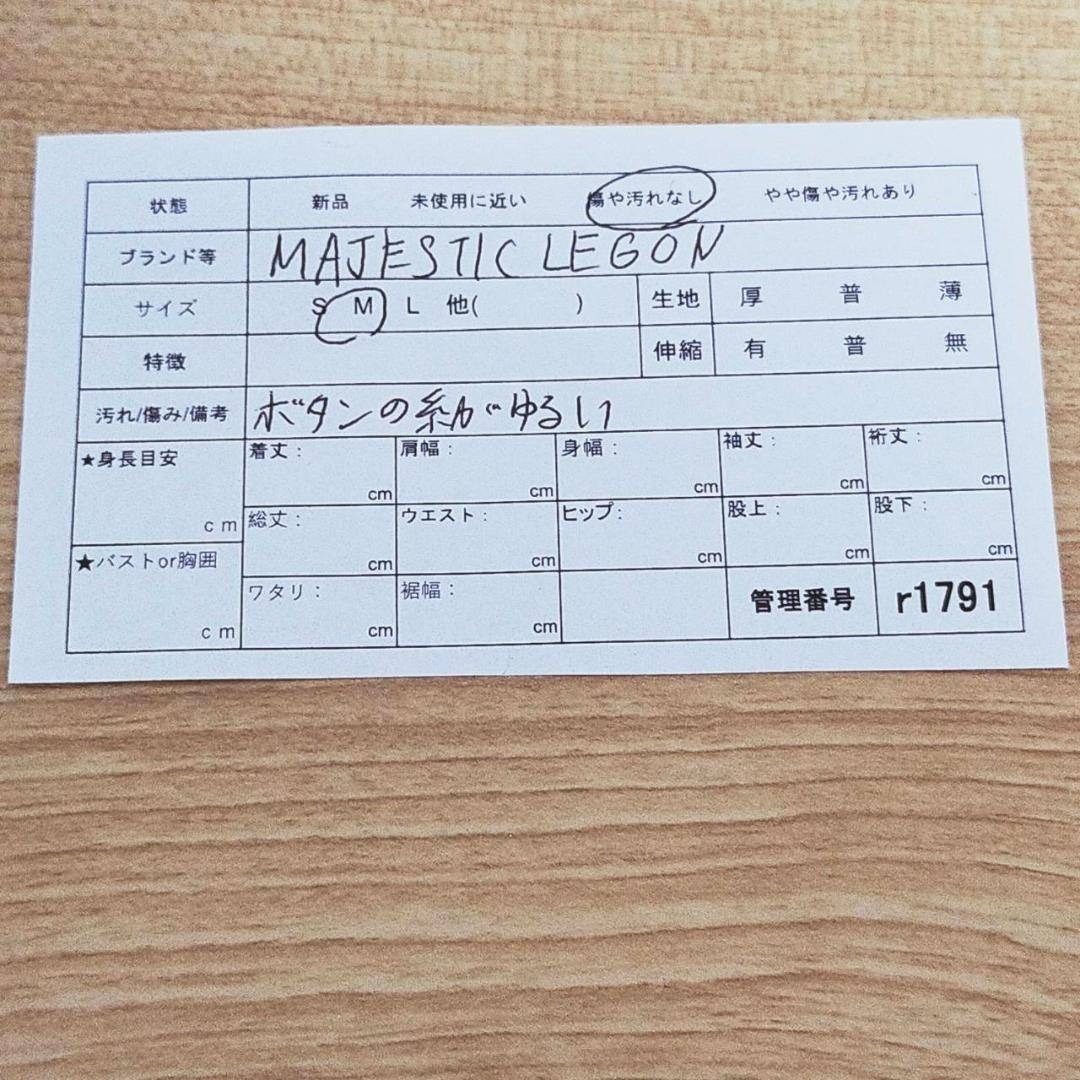 状態 新品 未使用に近い 傷や汚れなし やや傷や汚れあり
ブランド等 MAJESTIC LEGON
サイズ S M L 他( ) 生地 厚 普 薄
特徴 伸縮 有 普 無
汚れ/傷み/備考 ボタンの糸がゆるい
★身長目安 cm 着丈: cm 肩幅: cm 身幅: cm 袖丈: cm 裄丈: cm
総丈: cm ウエスト: cm ヒップ: cm 股上: cm 股下: cm
★バストor胸囲 cm ワタリ: cm 裾幅: cm 管理番号 r1791